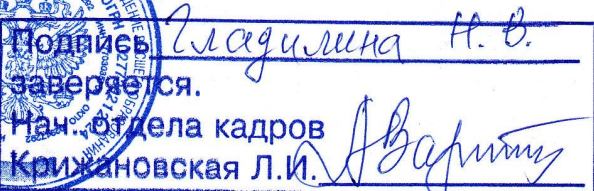 Подпись Гладилина Н. В.
заверяется.
Нач. отдела кадров
Крижановская Л.И.